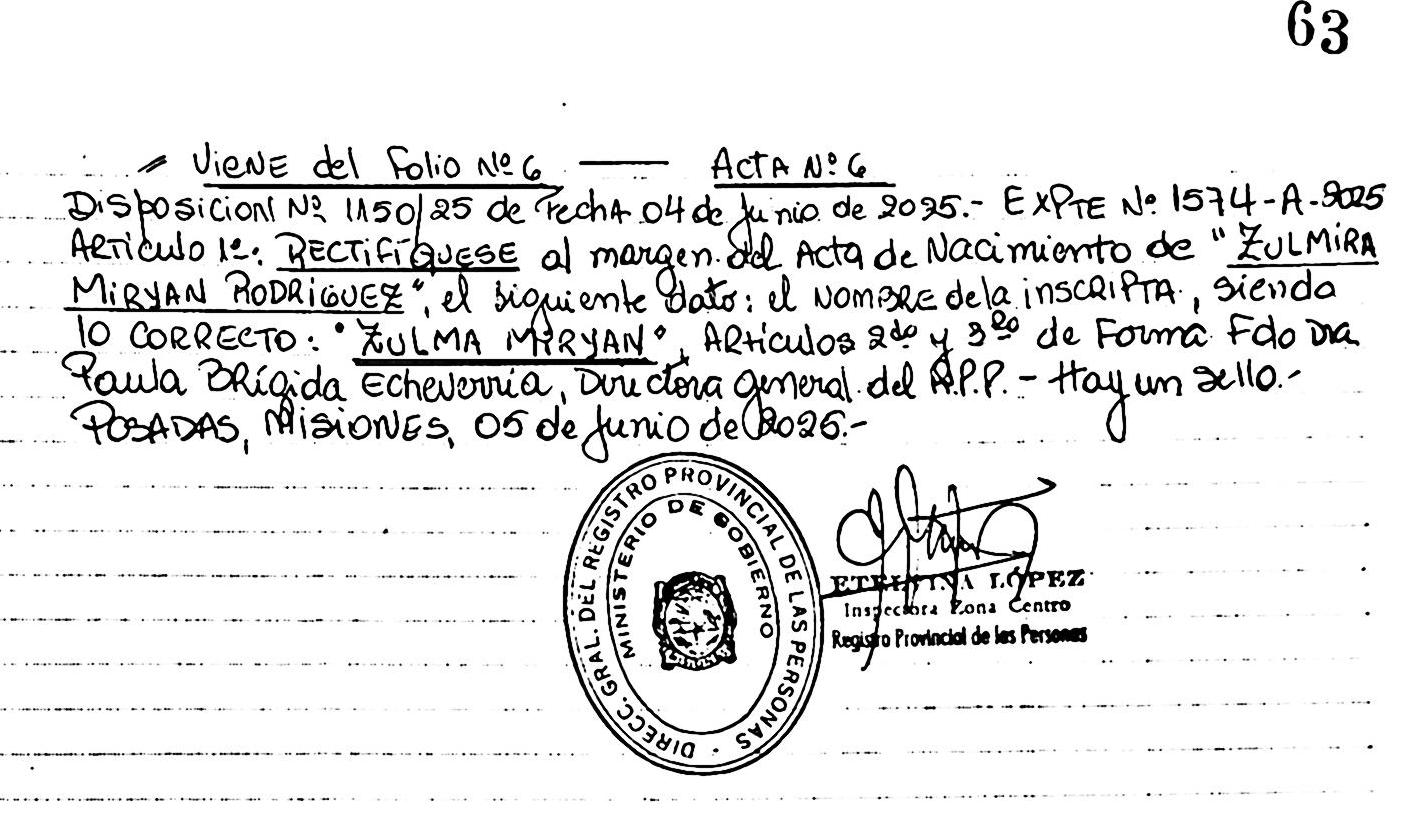 63
〃 Viene del Folio Nº 6 —— Acta Nº 6
Disposicion Nº 1150/25 de Fecha 04 de Junio de 2025.- EXPTE Nº 1574-A-2025
Artículo 1º: RECTIFÍQUESE al margen del Acta de Nacimiento de "ZULMIRA
MIRYAN RODRIGUEZ", el siguiente dato: el NOMBRE de la inscripta, siendo
lo CORRECTO: "ZULMA MIRYAN", Artículos 2do y 3ro de Forma Fdo Dra
Paula Brígida Echeverría, Directora general del R.P.P. - Hay un sello.-
POSADAS, MISIONES, 05 de Junio de 2025.-
DIRECC. GRAL. DEL REGISTRO PROVINCIAL DE LAS PERSONAS ·
MINISTERIO DE GOBIERNO
LÓPEZ
Inspectora Zona Centro
Registro Provincial de las Personas